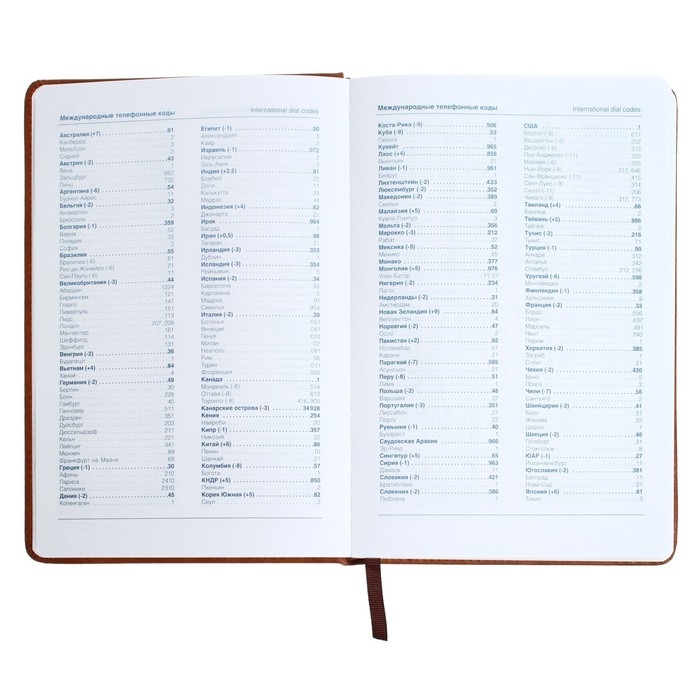 Международные телефонные коды International dial codes
Австралия (+7) 61
Канберра 2
Мельбурн 3
Сидней 2
Австрия (-2) 43
Вена
Зальцбург 662
Линц 732
Аргентина (-6) 54
Буэнос-Айрес
Бельгия (-2) 32
Антверпен
Брюссель 2
Болгария (-1) 359
Варна 52
Пловдив 32
София 2
Бразилия 55
Бразилиа (-6) 61
Рио-де-Жанейро (-6) 21
Сан-Паулу (-6) 11
Великобритания (-3) 44
Абердин 1224
Бирмингем 121
Глазго 141
Ливерпуль 151
Лидс 113
Лондон 207, 208
Манчестер 161
Шеффилд 114
Эдинбург 131
Венгрия (-2) 36
Будапешт 1
Вьетнам (+4) 84
Ханой 4
Германия (-2) 49
Берлин 30
Бонн 228
Гамбург 40
Ганновер 511
Дрезден 351
Дуйсбург 203
Дюссельдорф 211
Кельн 221
Лейпциг 341
Мюнхен 89
Франкфурт на Майне 69
Греция (-1) 30
Афины 210
Лариса 2410
Салоники 2310
Дания (-2) 45
Копенгаген
Египет (-1) 20
Александрия
Каир 2
Израиль (-1) 972
Иерусалим 2
Тель-Авив 3
Индия (+2,5) 91
Бомбей 22
Дели 11
Калькутта 33
Мадрас 44
Индонезия (+4) 62
Джакарта 21
Ирак 964
Багдад 1
Иран (+0,5) 98
Тегеран 21
Ирландия (-3) 353
Дублин 1
Исландия (-3) 354
Рейкьявик 5
Испания (-2) 34
Барселона 93
Картахена
Мадрид 91
Севилья 954
Италия (-2) 39
Болонья 051
Венеция 041
Генуя 010
Милан 02
Неаполь 081
Рим 06
Турин 011
Флоренция 055
Канада 1
Монреаль (-8) 514
Оттава (-8) 613
Торонто (-8) 416, 905
Канарские острова (-3) 34928
Кения 254
Найроби 20
Кипр (-1) 357
Никозия 22
Китай (+5) 86
Пекин 10
Шанхай 21
Колумбия (-8) 57
Богота 1
КНДР (+5) 850
Пхеньян 2
Корея Южная (+5) 82
Сеул 2
Международные телефонные коды International dial codes
Коста-Рика (-9) 506
Куба (-8) 53
Гавана 7
Кувейт 965
Лаос (+4) 856
Вьентьян 21
Ливан (-1) 961
Бейрут 1
Лихтенштейн (-2) 423
Люксембург (-2) 352
Македония (-2) 389
Скопье 2
Малайзия (+5) 60
Куала Лумпур 3
Мальта (-2) 356
Марокко (-3) 212
Рабат 37
Мексика (-9) 52
Мехико 55
Монако 377
Монголия (+5) 976
Улан-Батор 11, 21
Нигерия (-2) 234
Лагос 1
Нидерланды (-2) 31
Амстердам 20
Новая Зеландия (+9) 64
Веллингтон 4
Норвегия (-2) 47
Осло 2
Пакистан (+2) 92
Исламабад 51
Карачи 21
Парагвай (-7) 595
Асунсьон 21
Перу (-8) 51
Лима 1
Польша (-2) 48
Варшава 22
Португалия (-3) 351
Лиссабон 21
Порту 22
Румыния (-1) 40
Бухарест 1
Саудовская Аравия 966
Эр-Рияд 1
Сингапур (+5) 65
Сирия (-1) 963
Дамаск 11
Словакия (-2) 421
Братислава
Словения (-2) 386
Любляна 1
США 1
Бостон (-8) 617
Вашингтон (-8) 202
Детройт (-8) 313
Лос-Анджелес (-11) 323
Майами (-8) 305
Нью-Йорк (-8) 212, 646
Сан-Франциско (-11) 415
Сент-Луис (-9) 314
Сиэтл (-11) 206
Чикаго (-9) 312, 773
Таиланд (+4) 66
Бангкок 2
Тайвань (+5) 886
Тайпей 2
Тунис (-2) 216
Тунис 71
Турция (-1) 90
Анкара 312
Анталья 242
Стамбул 212, 216
Уругвай (-6) 598
Монтевидео 2
Финляндия (-1) 358
Хельсинки 9
Франция (-2) 33
Бордо 556
Лион 437
Марсель 491
Нант 240
Париж 1
Хорватия (-2) 385
Загреб 1
Сплит 21
Чехия (-2) 420
Брно 5
Прага 2
Чили (-7) 56
Сантьяго 2
Швейцария (-2) 41
Берн 31
Женева 22
Цюрих 1
Швеция (-2) 46
Гетеборг 31
Стокгольм 8
ЮАР (-1) 27
Йоханнесбург 11
Югославия (-2) 381
Белград 11
Нови-Сад 21
Япония (+6) 81
Токио 3